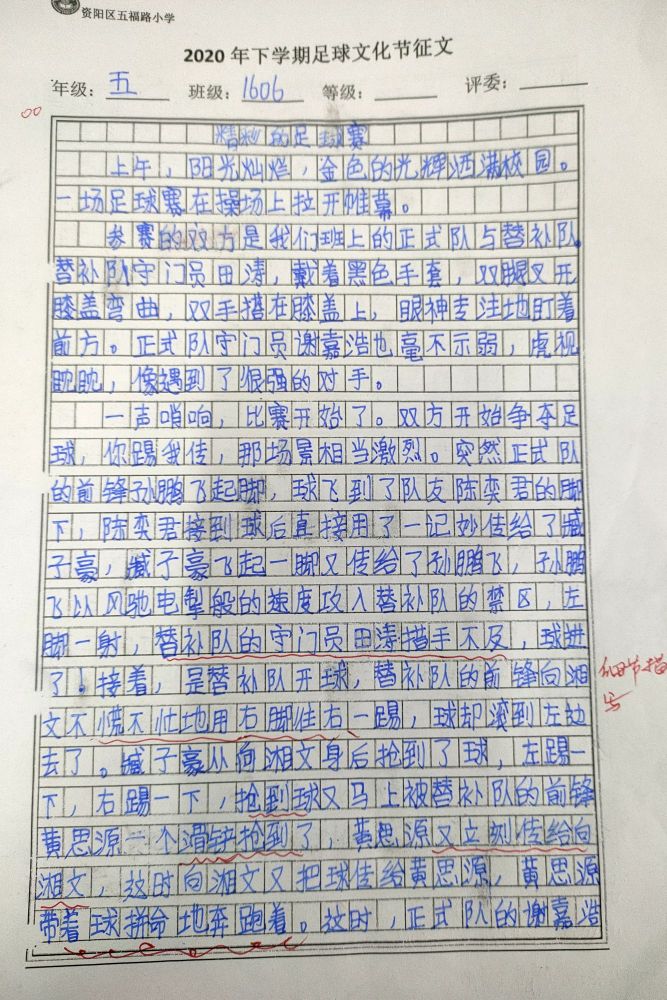 资阳区五福路小学
2020年下学期足球文化节征文
年级：五 班级：1606 等级： 评委：
精彩的足球赛
上午，阳光灿烂，金色的光辉洒满校园。
一场足球赛在操场上拉开帷幕。
参赛的双方是我们班上的正式队与替补队。
替补队守门员田涛，戴着黑色手套，双腿叉开
膝盖弯曲，双手搭在膝盖上，眼神专注地盯着
前方。正式队守门员谢嘉浩也毫不示弱，虎视
眈眈，像遇到了很强的对手。
一声哨响，比赛开始了。双方开始争夺足
球，你踢我传，那场景相当激烈。突然正式队
的前锋孙鹏飞起脚，球飞到了队友陈奕君的脚
下，陈奕君接到球后直接用了一记妙传给了臧
子豪，臧子豪飞起一脚又传给了孙鹏飞，孙鹏
飞以风驰电掣般的速度攻入替补队的禁区，左
脚一射，替补队的守门员田涛措手不及，球进
了！接着，是替补队开球，替补队的前锋向湘
文不慌不忙地用右脚往右一踢，球却滚到左边
去了。臧子豪从向湘文身后抢到了球，左踢一
下，右踢一下，抢到球又马上被替补队的前锋
黄思源一个滑铲抢到了，黄思源又立刻传给向
湘文，这时向湘文又把球传给黄思源，黄思源
带着球拼命地奔跑着。这时，正式队的谢嘉浩
细节描
写